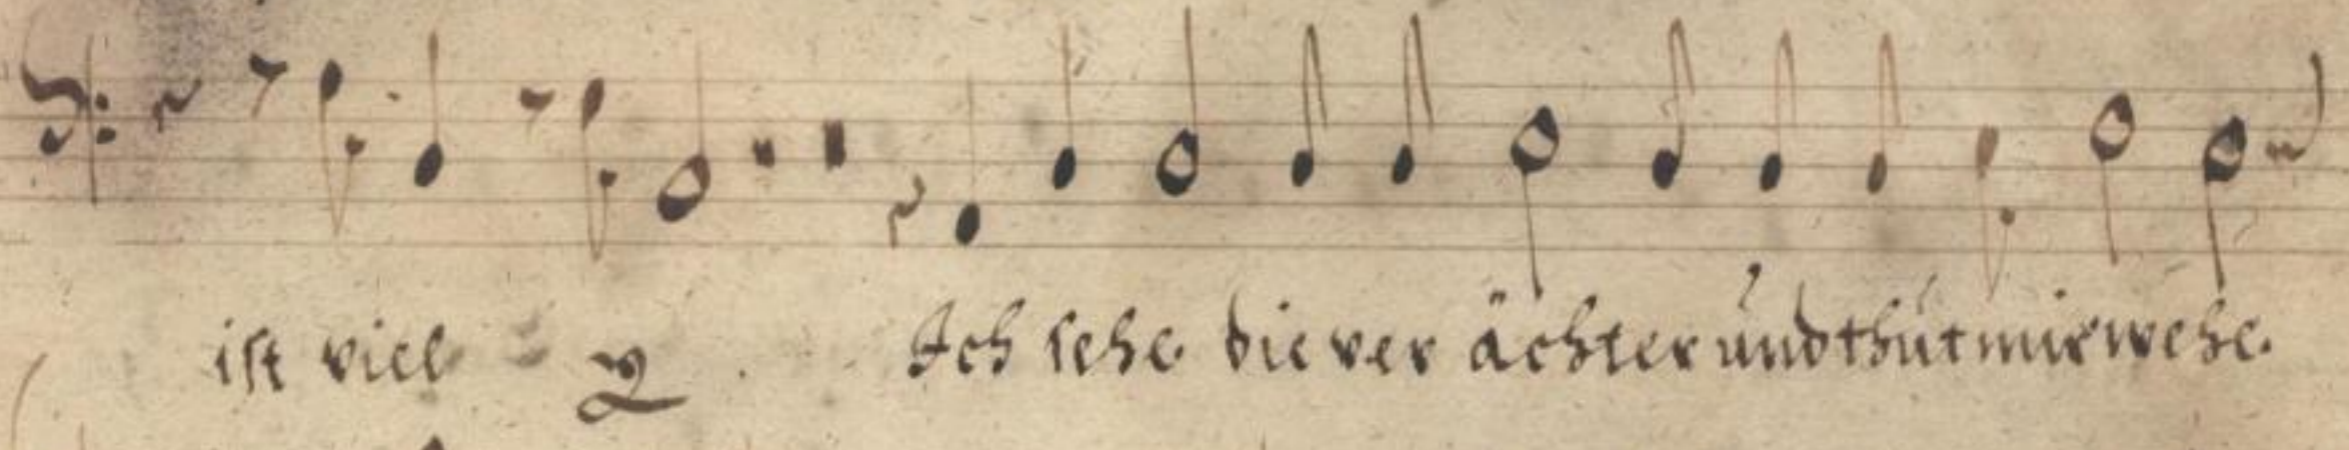 ist viel Ich sehe die ver ächter und thut mir wehe.